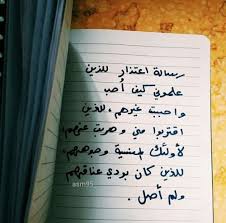 رسالة اعتذار للذين
علموني كيف أحب
واحببت غيرهم، للذين
اقتربوا مني وهربت عنهم،
لأولئك المنسية وجوههم،
للذين كان بودي عناقهم
ولم أصل.
asm95